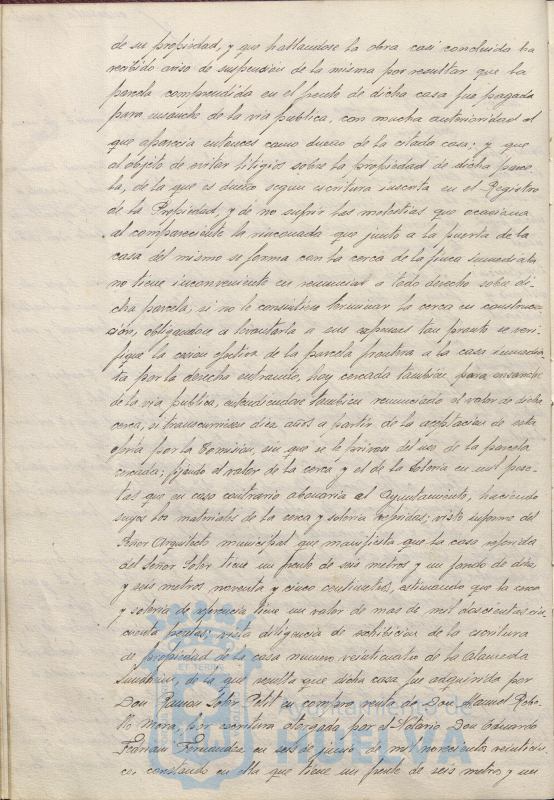 de su propiedad, y que hallandose la obra casi concluida ha
recibido aviso de suspension de la misma por resultar que la
parcela comprendida en el frente de dicha casa fue pagada
para ensanche de la via publica, con mucha anterioridad al
que aparecia entonces como dueño de la citada casa; y que
al objeto de evitar litigios sobre la propiedad de dicha parce-
la, de la que es dueño segun escritura inscrita en el Registro
de la Propiedad, y de no sufrir las molestias que ocasiona
al compareciente la rinconada que junto a la puerta de la
casa del mismo se forma con la cerca de la finca inmediata
no tiene inconveniente en renunciar a todo derecho sobre di-
cha parcela, si se le consintiera terminar la cerca en construc-
ción, obligandose a levantarla a sus expensas tan pronto se veri-
fique la cesion efectiva de la parcela frontera a la casa inmedia-
ta por la derecha entrando, hoy cercada tambien para ensanche
de la via publica, entendiendose tambien renunciado el valor de dicha
cerca, si transcurriesen diez años a partir de la aceptacion de esta
oferta por la Comision, sin que se le privase del uso de la parcela
cercada; fijando el valor de la cerca y el de la soleria en mil pese-
tas que en caso contrario abonaria el Ayuntamiento, haciendo
suyos los materiales de la cerca y soleria referidas; visto informe del
Señor Arquitecto municipal que manifiesta que la casa referida
del Señor Soler tiene un frente de seis metros y un fondo de diez
y seis metros noventa y cinco centimetros, estimando que la cerca
y soleria de referencia tiene un valor de mas de mil doscientas cin-
cuenta pesetas; vista diligencia de exhibicion de la escritura
de propiedad de la casa numero veinticuatro de la Alameda
Sundheim, de la que resulta que dicha casa fue adquirida por
Don Ramon Soler Petit en compra venta de Don Manuel Rebo-
llo Mora, por escritura otorgada por el Notario Don Eduardo
Fernandez en seis de junio de mil novecientos veintici-
co, constando en ella que tiene un frente de seis metros y un
Ayuntamiento de
HUELVA